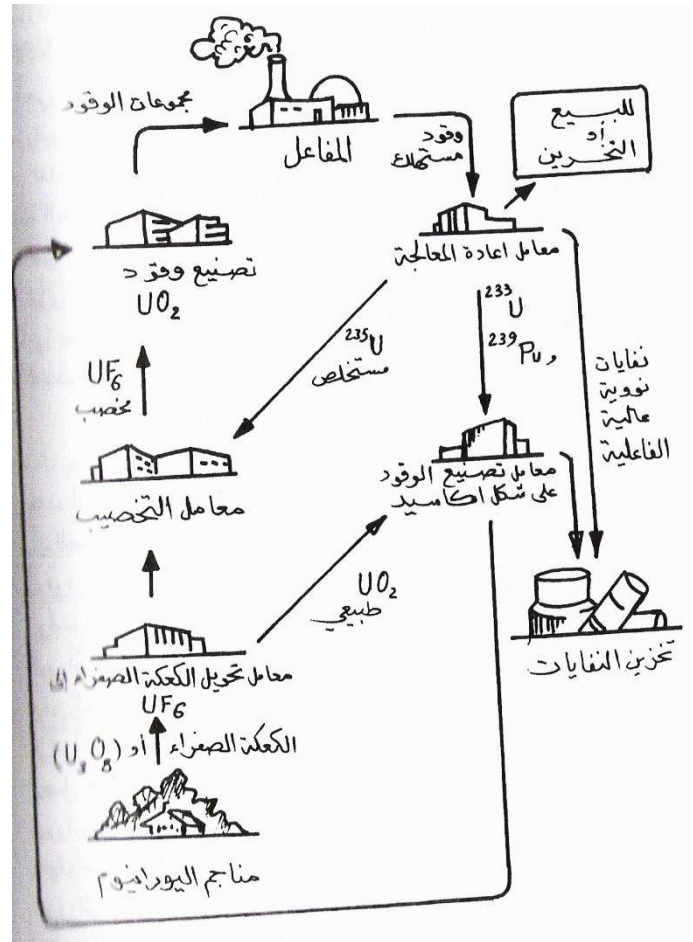 مجموعات الوقود
المفاعل
وقود
مستهلك
للبيع
أو
التخزين
تصنيع وقود
UO₂
معامل اعادة المعالجة
²³³U
و ²³⁹Pu
²³⁵U
مستخلص
UF₆
مخصب
نفايات
نووية
عالية
الفاعلية
معامل التخصيب
معامل تصنيع الوقود
على شكل اكاسيد
UO₂
طبيعي
تخزين النفايات
معامل تحويل الكعكة الصفراء إلى
UF₆
الكعكة الصفراء أو (U₃O₈)
مناجم اليورانيوم